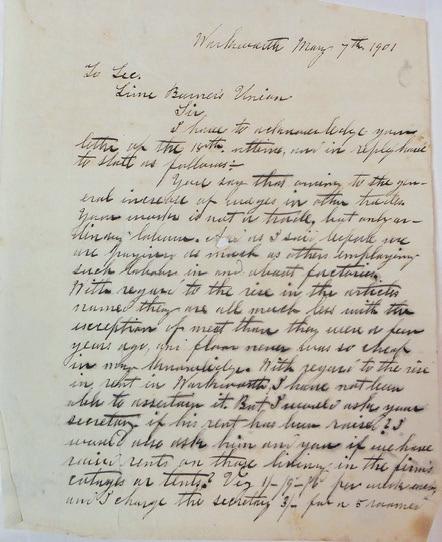 Warkworth May 7th 1901
To Sec.
Lime Burner's Union
Sir
I have to acknowledge your
letter of the 18th ultimo, and in reply have
to state as follows:-
You say that owing to the gen-
eral increase of wages in other trades
Your work is not a trade, but only or-
dinary labour. And as I said before we
are paying as much as others employing
such labour in and about factories.
With regard to the rise in the articles
named they are all much less with the
exception of meat than they were a few
years ago, and flour never was so cheap
in my knowledge. With regard to the rise
in rent in Warkworth, I have not been
able to assertain it. But I would ask your
secretary if his rent has been raised? I
would also ask him and you if we have
raised rents on those living in the firm's
cottages or tents? Viz 1/- 1/9- 1/6 per week
and I charge the secretary 3/- for a 5 roomed